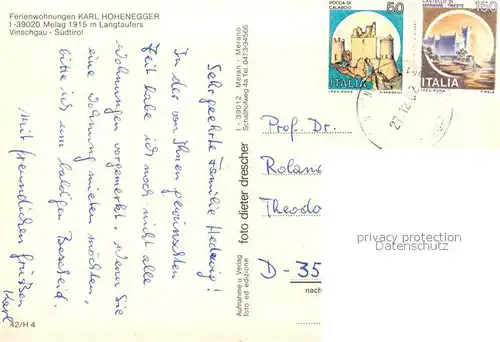 Ferienwohnungen KARL HOHENEGGER
I -39020 Melag 1915 m Langtaufers
Vinschgau - Südtirol
Sehr geehrte Familie Hedwig!
In der von Ihnen gewünschten
Zeit habe ich noch nicht alle
Wohnungen vorgemerkt. Wenn Sie
eine Wohnung mieten möchten,
bitte ich um baldigen Bescheid.
Mit freundlichen Grüßen
Karl
42/H 4
I - 39012 Meran - Merano
Schallhofweg 4a Tel. 0473/34566
foto dieter drescher
Aufnahme u. Verlag
foto ed edizione
ROCCA DI
CALASCIO
50
ITALIA
CASTELLO DI
MIRAMARE - TRIESTE
ITALIA
Prof. Dr.
Roland
Theodo
D - 35
nach
privacy protection
Datenschutz